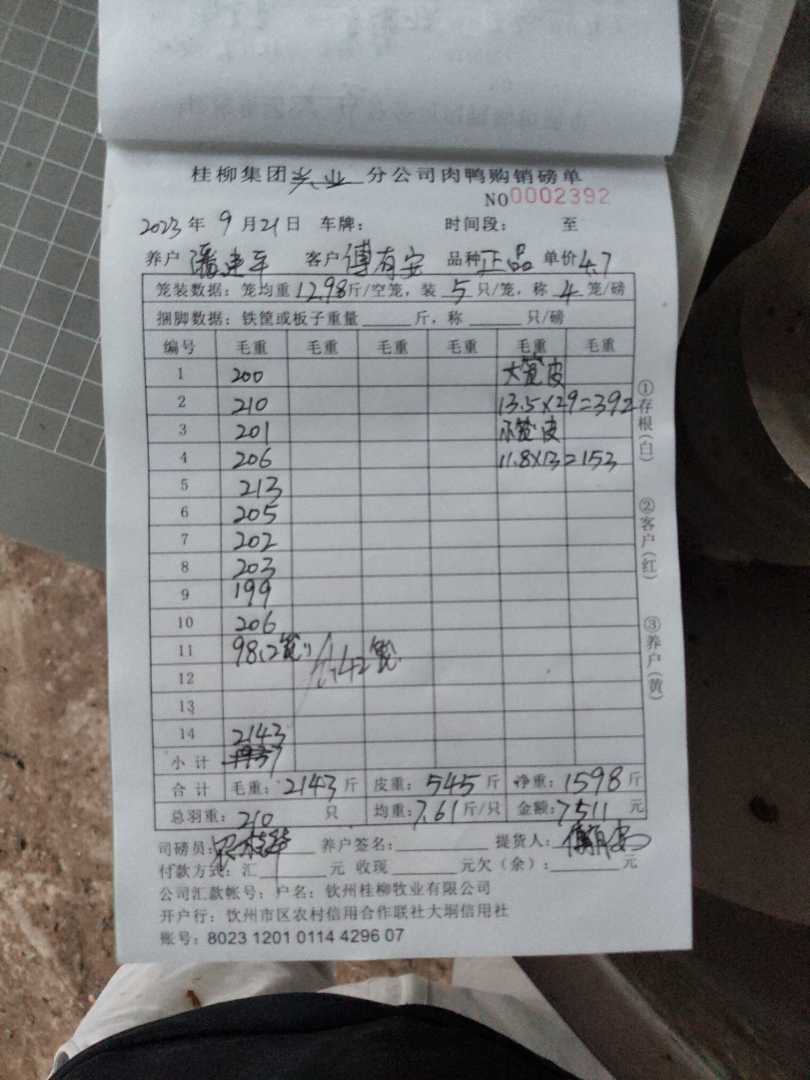 桂柳集团兴业分公司肉鸭购销磅单
NO0002392
2023年9月21日 车牌: 时间段: 至
养户 潘建平 客户 傅有安 品种 正品 单价4.7
笼装数据: 笼均重12.98斤/空笼, 装5只/笼, 称4笼/磅
捆脚数据: 铁筐或板子重量 斤, 称 只/磅
编号 毛重 毛重 毛重 毛重 毛重 毛重
1 200 大笼皮
2 210 13.5×29=392
3 201 小笼皮
4 206 11.8×13=153
5 213
6 205
7 202
8 203
9 199
10 206
11 98(2笼) 42笼
12
13
14 2143
小计
合计 毛重: 2143斤 皮重: 545斤 净重: 1598斤
总羽重: 210 只 均重: 7.61斤/只 金额: 7511 元
司磅员: 养户签名: 提货人: 傅有安
付款方式: 汇 元 收现 元欠(余): 元
公司汇款帐号: 户名: 钦州桂柳牧业有限公司
开户行: 钦州市区农村信用合作联社大垌信用社
账号: 8023 1201 0114 4296 07
①存根(白)
②客户(红)
③养户(黄)